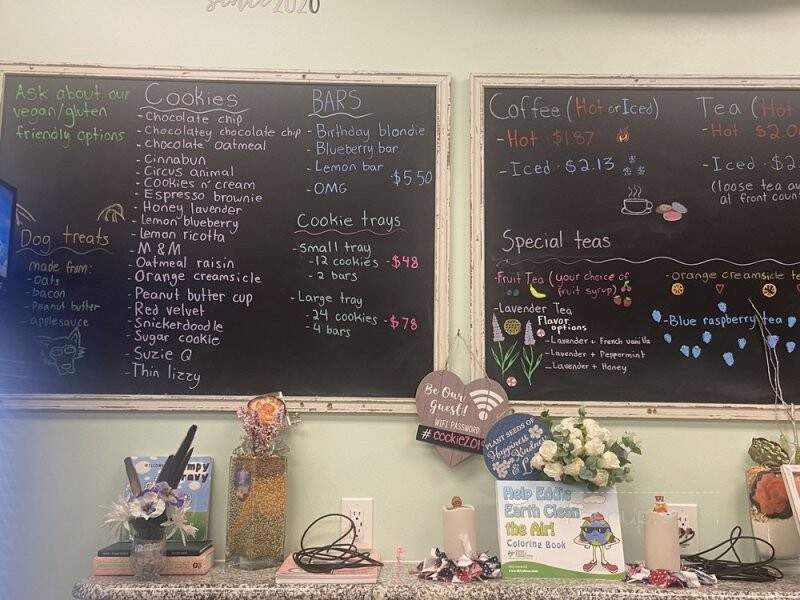 since 2020
Ask about our
vegan/gluten
friendly options
Dog treats
made from:
- oats
- bacon
- Peanut butter
- applesauce
Cookies
- Chocolate chip
- Chocolatey chocolate chip
- Chocolate oatmeal
- Cinnabun
- Circus animal
- Cookies n' cream
- Espresso brownie
- Honey lavender
- Lemon blueberry
- Lemon ricotta
- M & M
- Oatmeal raisin
- Orange creamsicle
- Peanut butter cup
- Red velvet
- Snickerdoodle
- Sugar cookie
- Suzie Q
- Thin lizzy
BARS
- Birthday blondie
- Blueberry bar
- Lemon bar
- OMG
$5.50
Cookie trays
- Small tray
- 12 cookies - $48
- 2 bars
- Large tray
- 24 cookies - $78
- 4 bars
Coffee (Hot or Iced)
- Hot $1.87
- Iced - $2.13
Tea (Hot
- Hot $2.0
- Iced - $2
(loose tea
at front
Special teas
- Fruit Tea (your choice of
fruit syrup)
- Lavender Tea
Flavor
options
- Lavender + French vanilla
- Lavender + Peppermint
- Lavender + Honey
- Orange creamsicle
- Blue raspberry tea
Be Our
Guest!
WIFI PASSWORD
#cookie2019
PLANT SEEDS OF
Happiness
Kindness
&
Help Eddie
Earth Clean
the Air!
Coloring Book